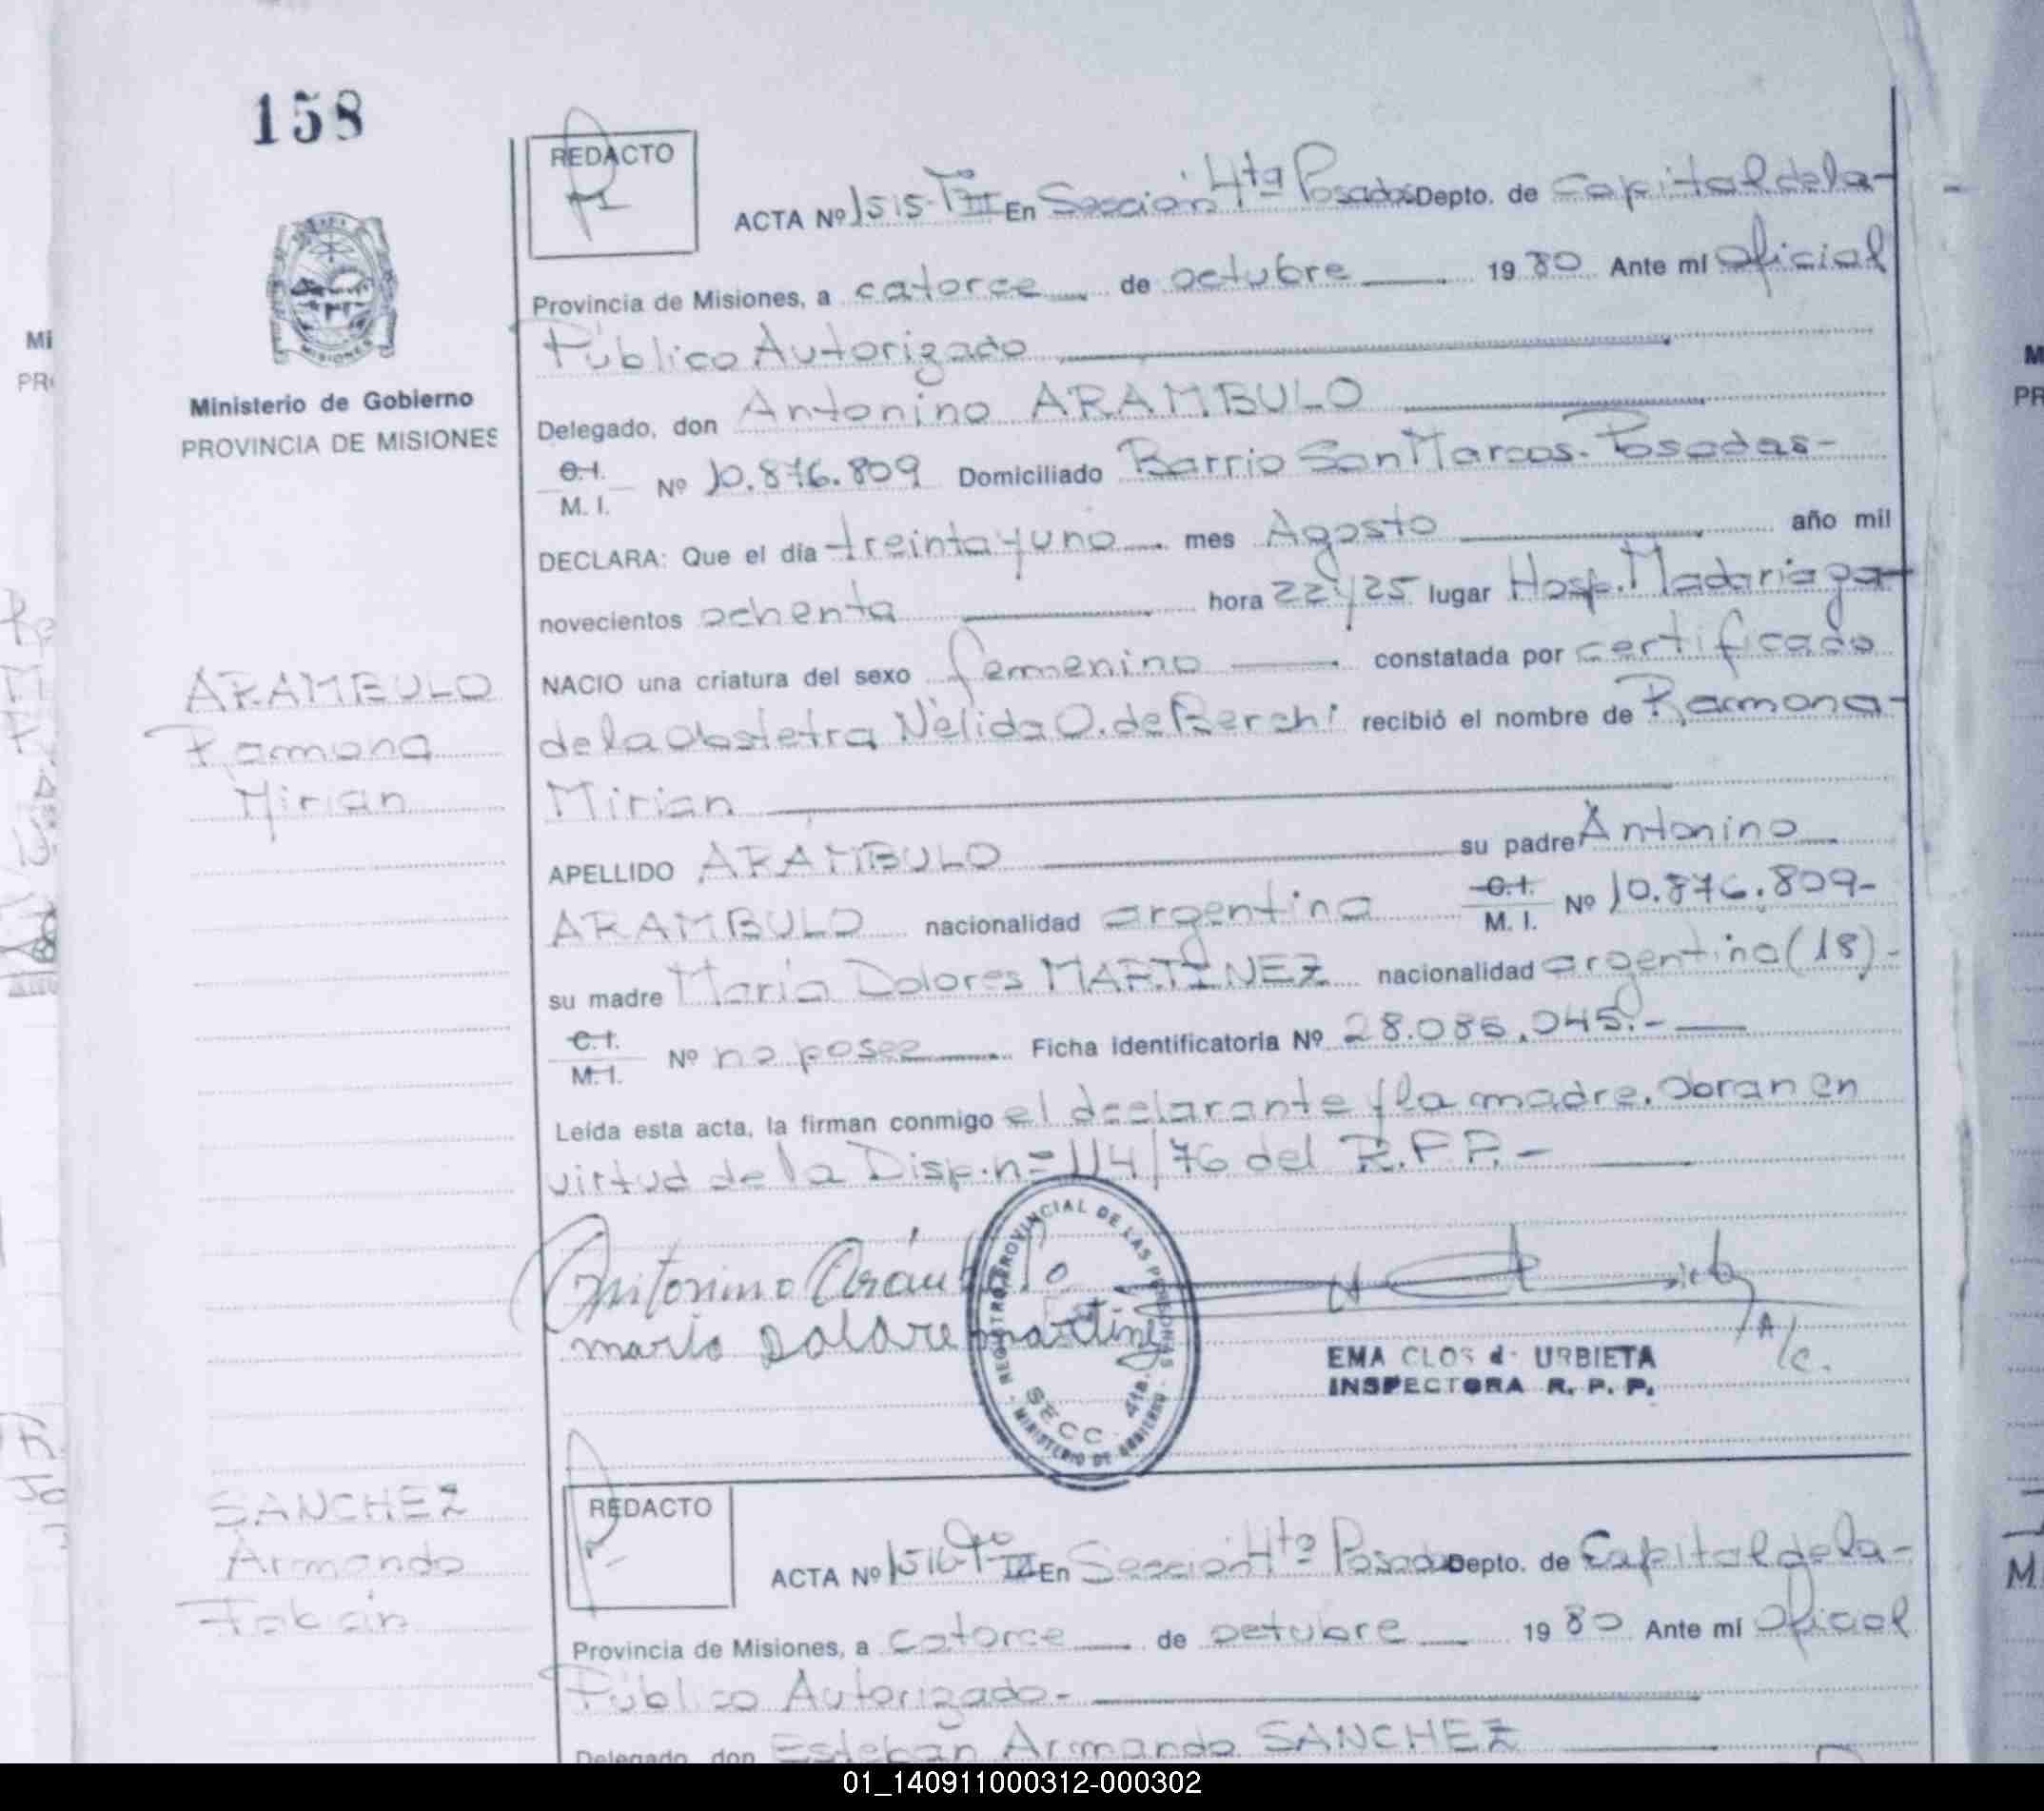 158
REDACTO
ACTA Nº 1515-Tº III En Sección 4ta Posadas Depto. de Capital de la-
Provincia de Misiones, a catorce de octubre 1980 Ante mí Oficial
Público Autorizado
Ministerio de Gobierno
PROVINCIA DE MISIONES
Delegado, don Antonino ARAMBULO
C.I. M. I. Nº 10.876.809 Domiciliado Barrio San Marcos-Posadas-
DECLARA: Que el día treinta y uno mes Agosto año mil
novecientos ochenta hora 22 y 25 lugar Hosp. Madariaga-
ARAMBULO
Ramona
Mirian
NACIO una criatura del sexo femenino constatada por certificado
de la Obstetra Nélida O. de Berchi recibió el nombre de Ramona-
Mirian
APELLIDO ARAMBULO su padre Antonino
ARAMBULO nacionalidad argentina C.I. M. I. Nº 10.876.809-
su madre María Dolores MARTINEZ nacionalidad argentina (18)-
C.I. M.I. Nº no posee Ficha identificatoria Nº 28.085.045.-
Leída esta acta, la firman conmigo el declarante y la madre. Obran en
virtud de la Disp. nº 114/76 del R.P.P.-
Antonino Arámbulo
maria Dolore martine
REGISTRO PROVINCIAL DE LAS PERSONAS
SECC. 4ta.
MINISTERIO DE GOBIERNO
A/c.
EMA CLOS de URBIETA
INSPECTORA R. P. P.
SANCHEZ
Armando
Fabián
REDACTO
ACTA Nº 1516-Tº III En Sección 4ta Posadas Depto. de Capital de la-
Provincia de Misiones, a catorce de octubre 1980 Ante mí Oficial
Público Autorizado-
Delegado, don Esteban Armando SANCHEZ
01_140911000312-000302